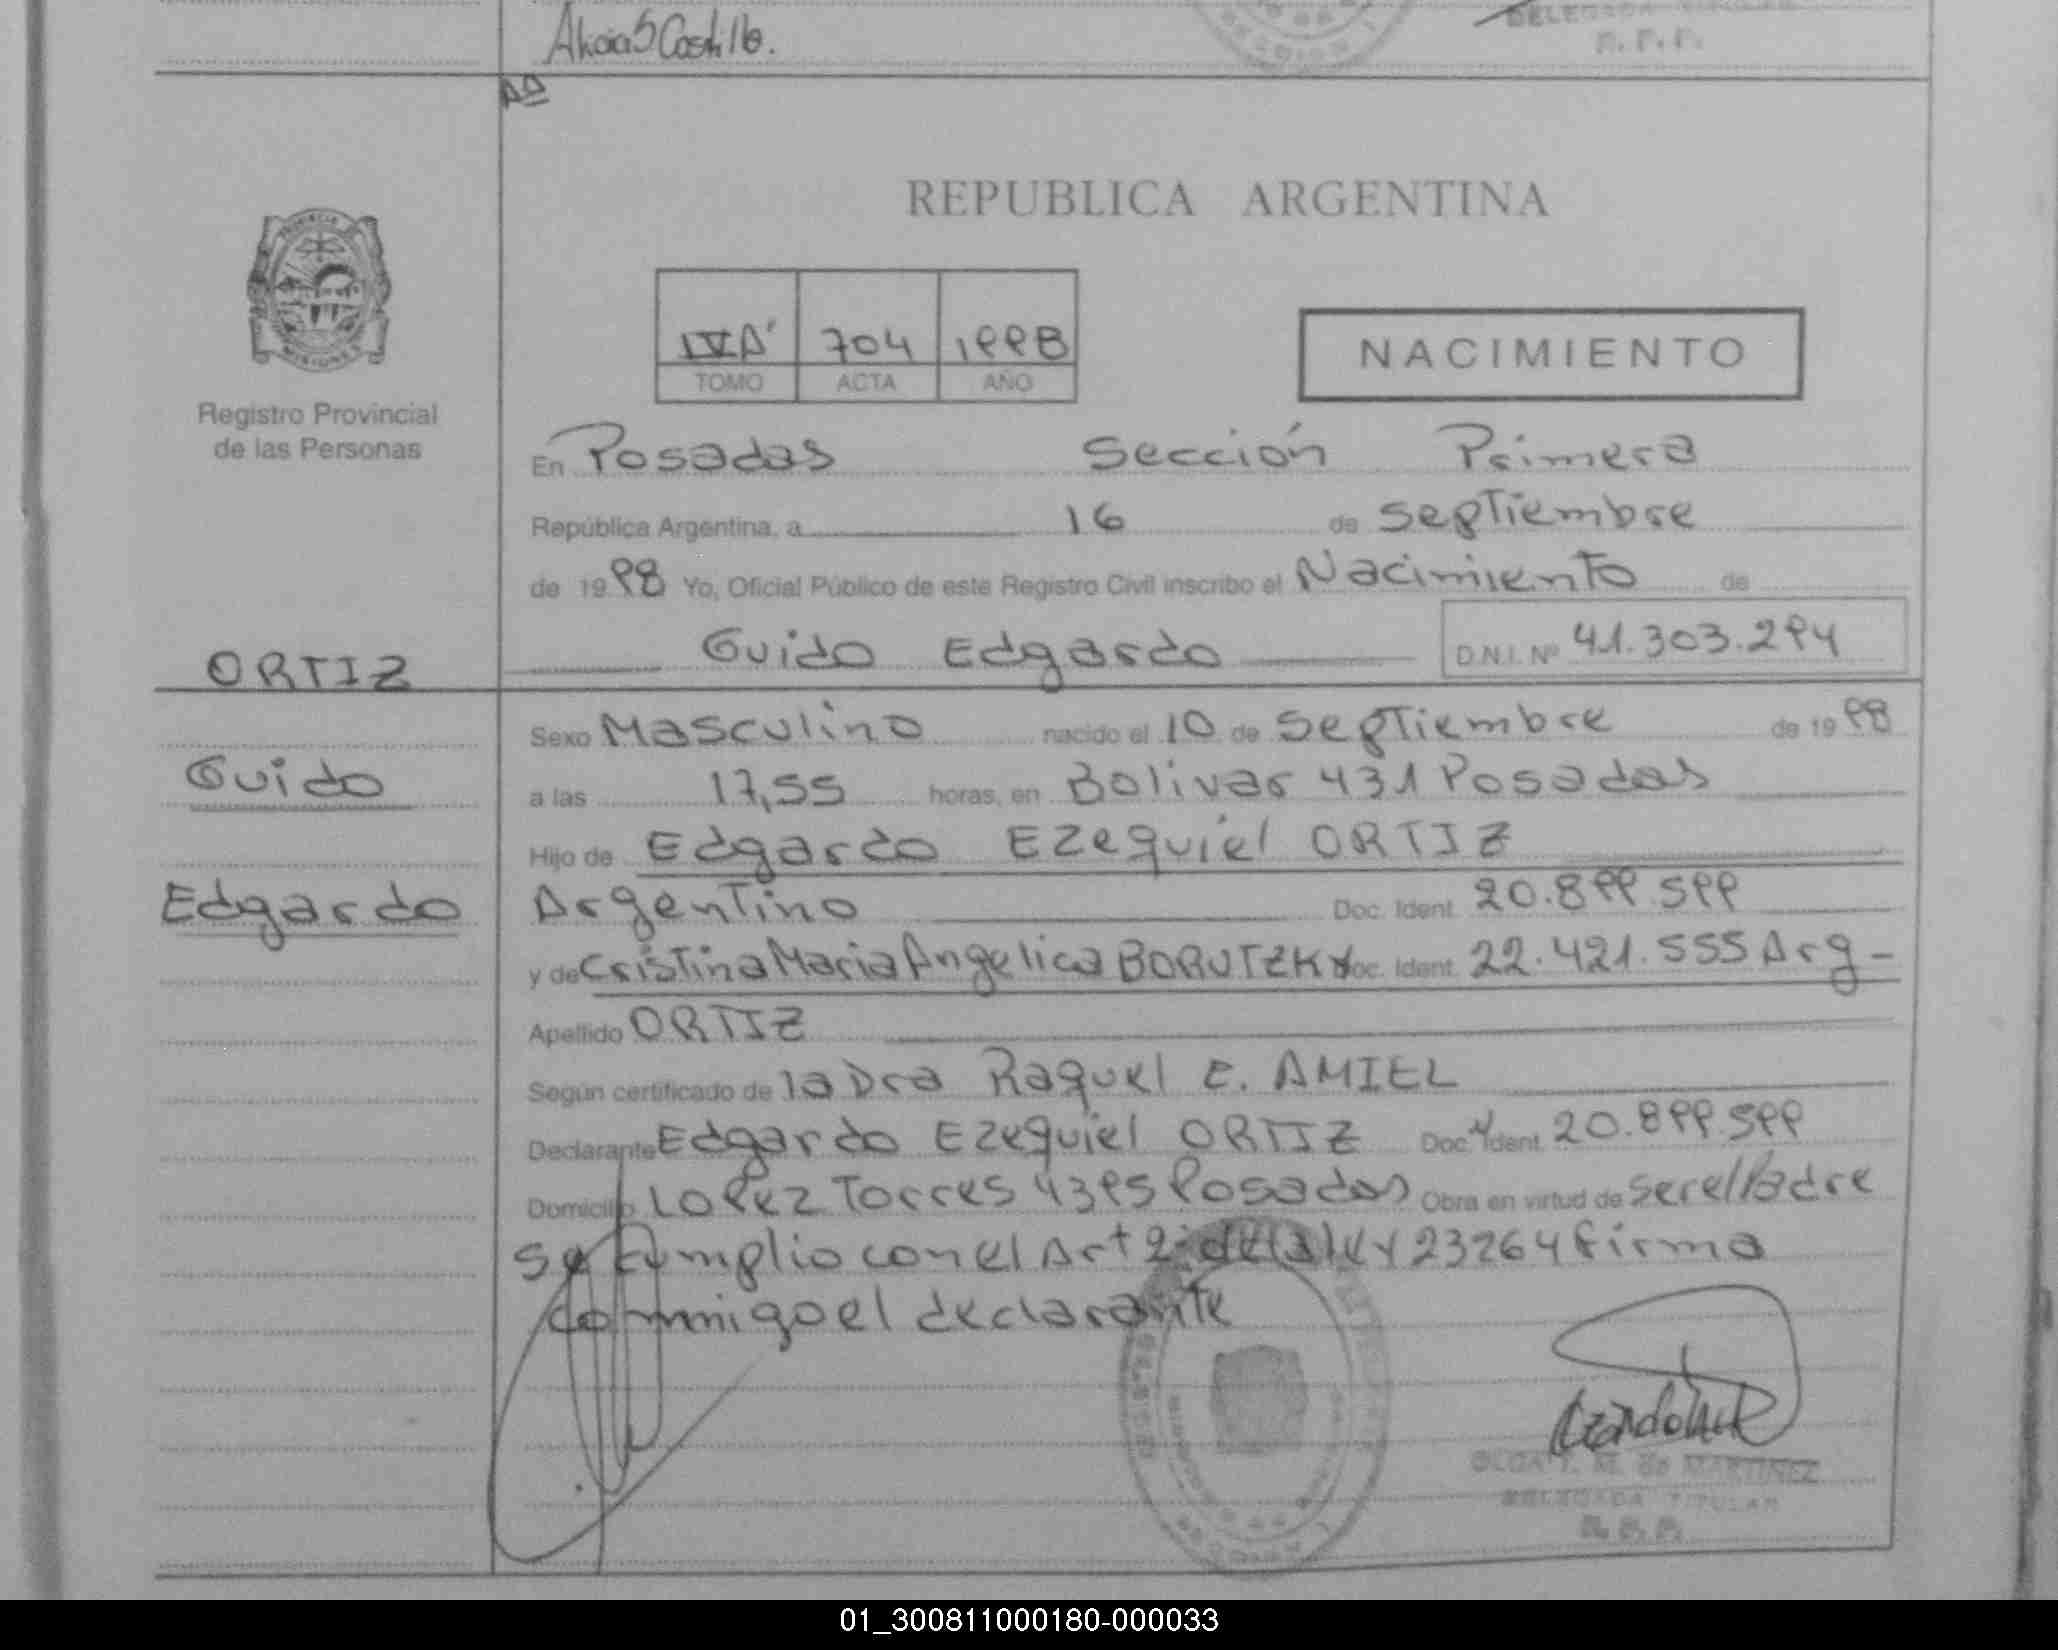 Alicia S Castillo.
DELEGADA TITULAR
R. P. P.
REPUBLICA ARGENTINA
PROVINCIA DE
MISIONES
Registro Provincial
de las Personas
IV A' 704 1998
TOMO ACTA AÑO
NACIMIENTO
En Posadas Sección Primera
República Argentina, a 16 de septiembre
de 1998 Yo, Oficial Público de este Registro Civil inscribo el Nacimiento de
ORTIZ Guido Edgardo D.N.I. Nº 41.303.294
Sexo Masculino nacido el 10 de septiembre de 1998
Guido a las 17,55 horas, en Bolivar 431 Posadas
Hijo de Edgardo Ezequiel ORTIZ
Edgardo Argentino Doc. Ident. 20.899.599
y de Cristina Maria Angelica BORUTZKY Doc. Ident. 22.421.555 Arg-
Apellido ORTIZ
Según certificado de la Dra Raquel E. AMIEL
Declarante Edgardo Ezequiel ORTIZ Doc. Ident. 20.899.599
Domicilio Lopez Torres 4395 Posadas Obra en virtud de ser el Padre
se cumplio con el Art 2: de la ley 23264 firma
conmigo el declarante
OLGA T. M. de MARTINEZ
DELEGADA TITULAR
R. P. P.
01_300811000180-000033